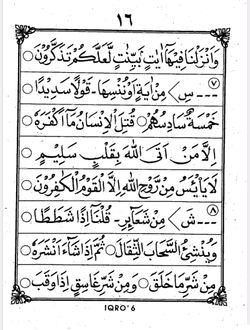 ١٦
وَاَنْزَلْنَا فِيْهَآ اٰيٰتٍ بَيِّنٰتٍ لَّعَلَّكُمْ تَذَكَّرُوْنَ
٧
ـ ـ ـ س > مِنْ اٰيَةٍ اَوْ نُنْسِهَا - قَوْلًا سَدِيْدًا
خَمْسَةٌ سَادِسُهُمْ قُتِلَ الْاِنْسَانُ مَآ اَكْفَرَهٗ
اِلَّا مَنْ اَتَى اللّٰهَ بِقَلْبٍ سَلِيْمٍ
لَا يَايْـَٔسُ مِنْ رَّوْحِ اللّٰهِ اِلَّا الْقَوْمُ الْكٰفِرُوْنَ
٨
ـ ـ ـ ش > مِنْ شَعَآئِرِ - قُلْنَآ اِذًا شَطَطًا
وَيُنْشِئُ السَّحَابَ الثِّقَالَ ثُمَّ اِذَا شَآءَ اَنْشَرَهٗ
مِنْ شَرِّ مَا خَلَقَ وَمِنْ شَرِّ غَاسِقٍ اِذَا وَقَبَ
IQRO' 6